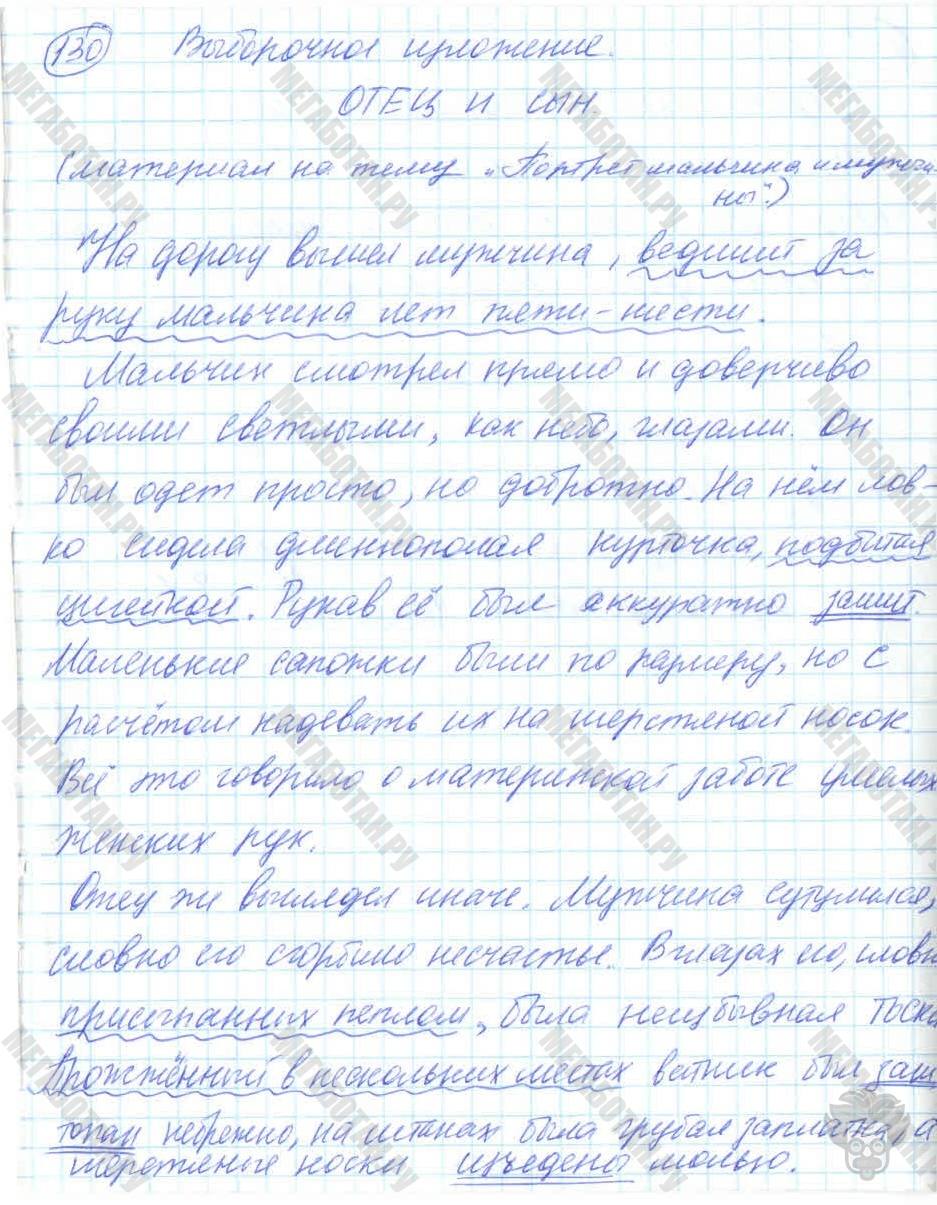 130 Выборочное изложение.
ОТЕЦ И СЫН.
(материал на тему „Портрет мальчика и мужчи-
ны".)
На дорогу вышел мужчина, ведший за
руку мальчика лет пяти-шести.
Мальчик смотрел прямо и доверчиво
своими светлыми, как небо, глазами. Он
был одет просто, но добротно. На нём лов-
ко сидела длиннополая курточка, подбитая
цигейкой. Рукав её был аккуратно зашит.
Маленькие сапожки были по размеру, но с
расчётом надевать их на шерстяной носок.
Всё это говорило о материнской заботе умелых
женских рук.
Отец же выглядел иначе. Мужчина сутулился,
словно его сгорбило несчастье. В глазах его, словно
присыпанных пеплом, была неизбывная тоска
Прожжённый в нескольких местах ватник был заш
топан небрежно, на штанах была грубая заплатка, а
шерстяные носки изъедены молью.
МЕГАБОТАН.РУ